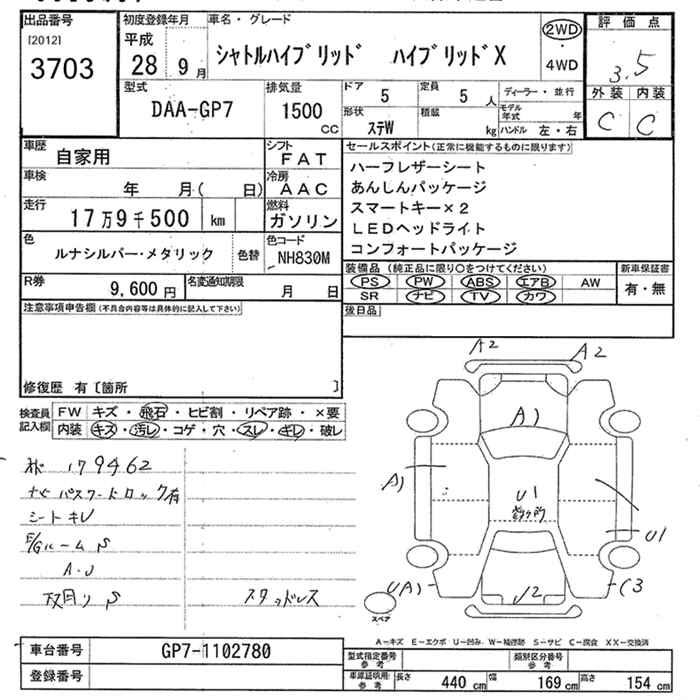 出品番号
[2012]
3703
初度登録年月
平成
28 9月
車名・グレード
シャトルハイブリッド ハイブリッドX
2WD
・
4WD
評価点
3.5
外装 内装
C C
型式
DAA-GP7
排気量
1500
CC
ドア 5
定員 5 人
形状 ステW
積載 kg
ディーラー・並行
モデル年式 年
ハンドル 左・右
車歴
自家用
シフト
FAT
車検
年 月( 日)
冷房
AAC
走行
17万9千500 km
燃料
ガソリン
色
ルナシルバー・メタリック
色替
色コード
NH830M
R券
9,600円
名変通知期限
月 日
セールスポイント(正常に機能するものに限ります)
ハーフレザーシート
あんしんパッケージ
スマートキー×2
LEDヘッドライト
コンフォートパッケージ
装備品(純正品に限り〇をつけてください)
PS PW ABS エアB AW
SR ナビ TV カワ
新車保証書
有・無
後日品
注意事項申告欄(不具合内容等は具体的に記入して下さい)
修復歴 有〔箇所 〕
検査員
記入欄
FW キズ・飛石・ヒビ割・リペア跡・×要
内装 キズ・汚レ・コゲ・穴・スレ・キレ・破レ
179462
ナビパスワードロック有
シートキレ
E/Gルーム S
A・U
下回り S
スタッドレス
A2
A2
A1
A1
U1
U1
UA1
U2
C3
スペア
A―キズ E―エクボ U―凹み W―補修跡 S―サビ C―腐食 XX―交換済
車台番号
GP7-1102780
登録番号
型式指定番号
参考
類別区分番号
参考
車庫証明用:
参考
長さ 440 cm
幅 169 cm
高さ 154 cm